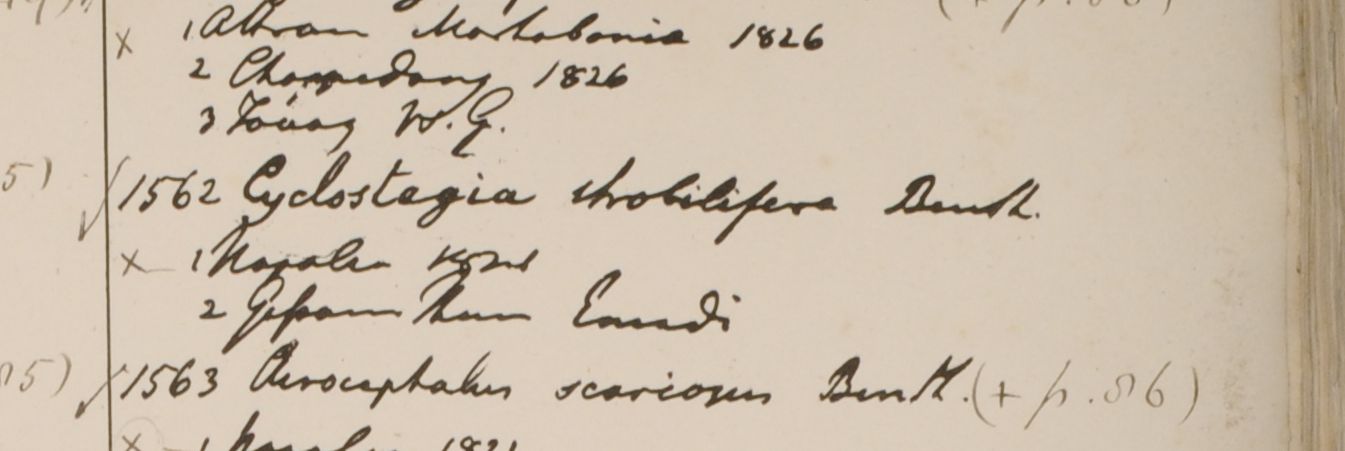 (+ p. 86)
x 1 Atran Martabania 1826
2 Chappedong 1826
3 Tavoy W.G.
5) √ 1562 Cyclostegia strobilifera Benth.
x 1 Napalia 1821
2 Gossam Than Emodi
85) √ 1563 Acrocephalus scariosus Benth. (+ p. 86)
x 1 Napalia 1821